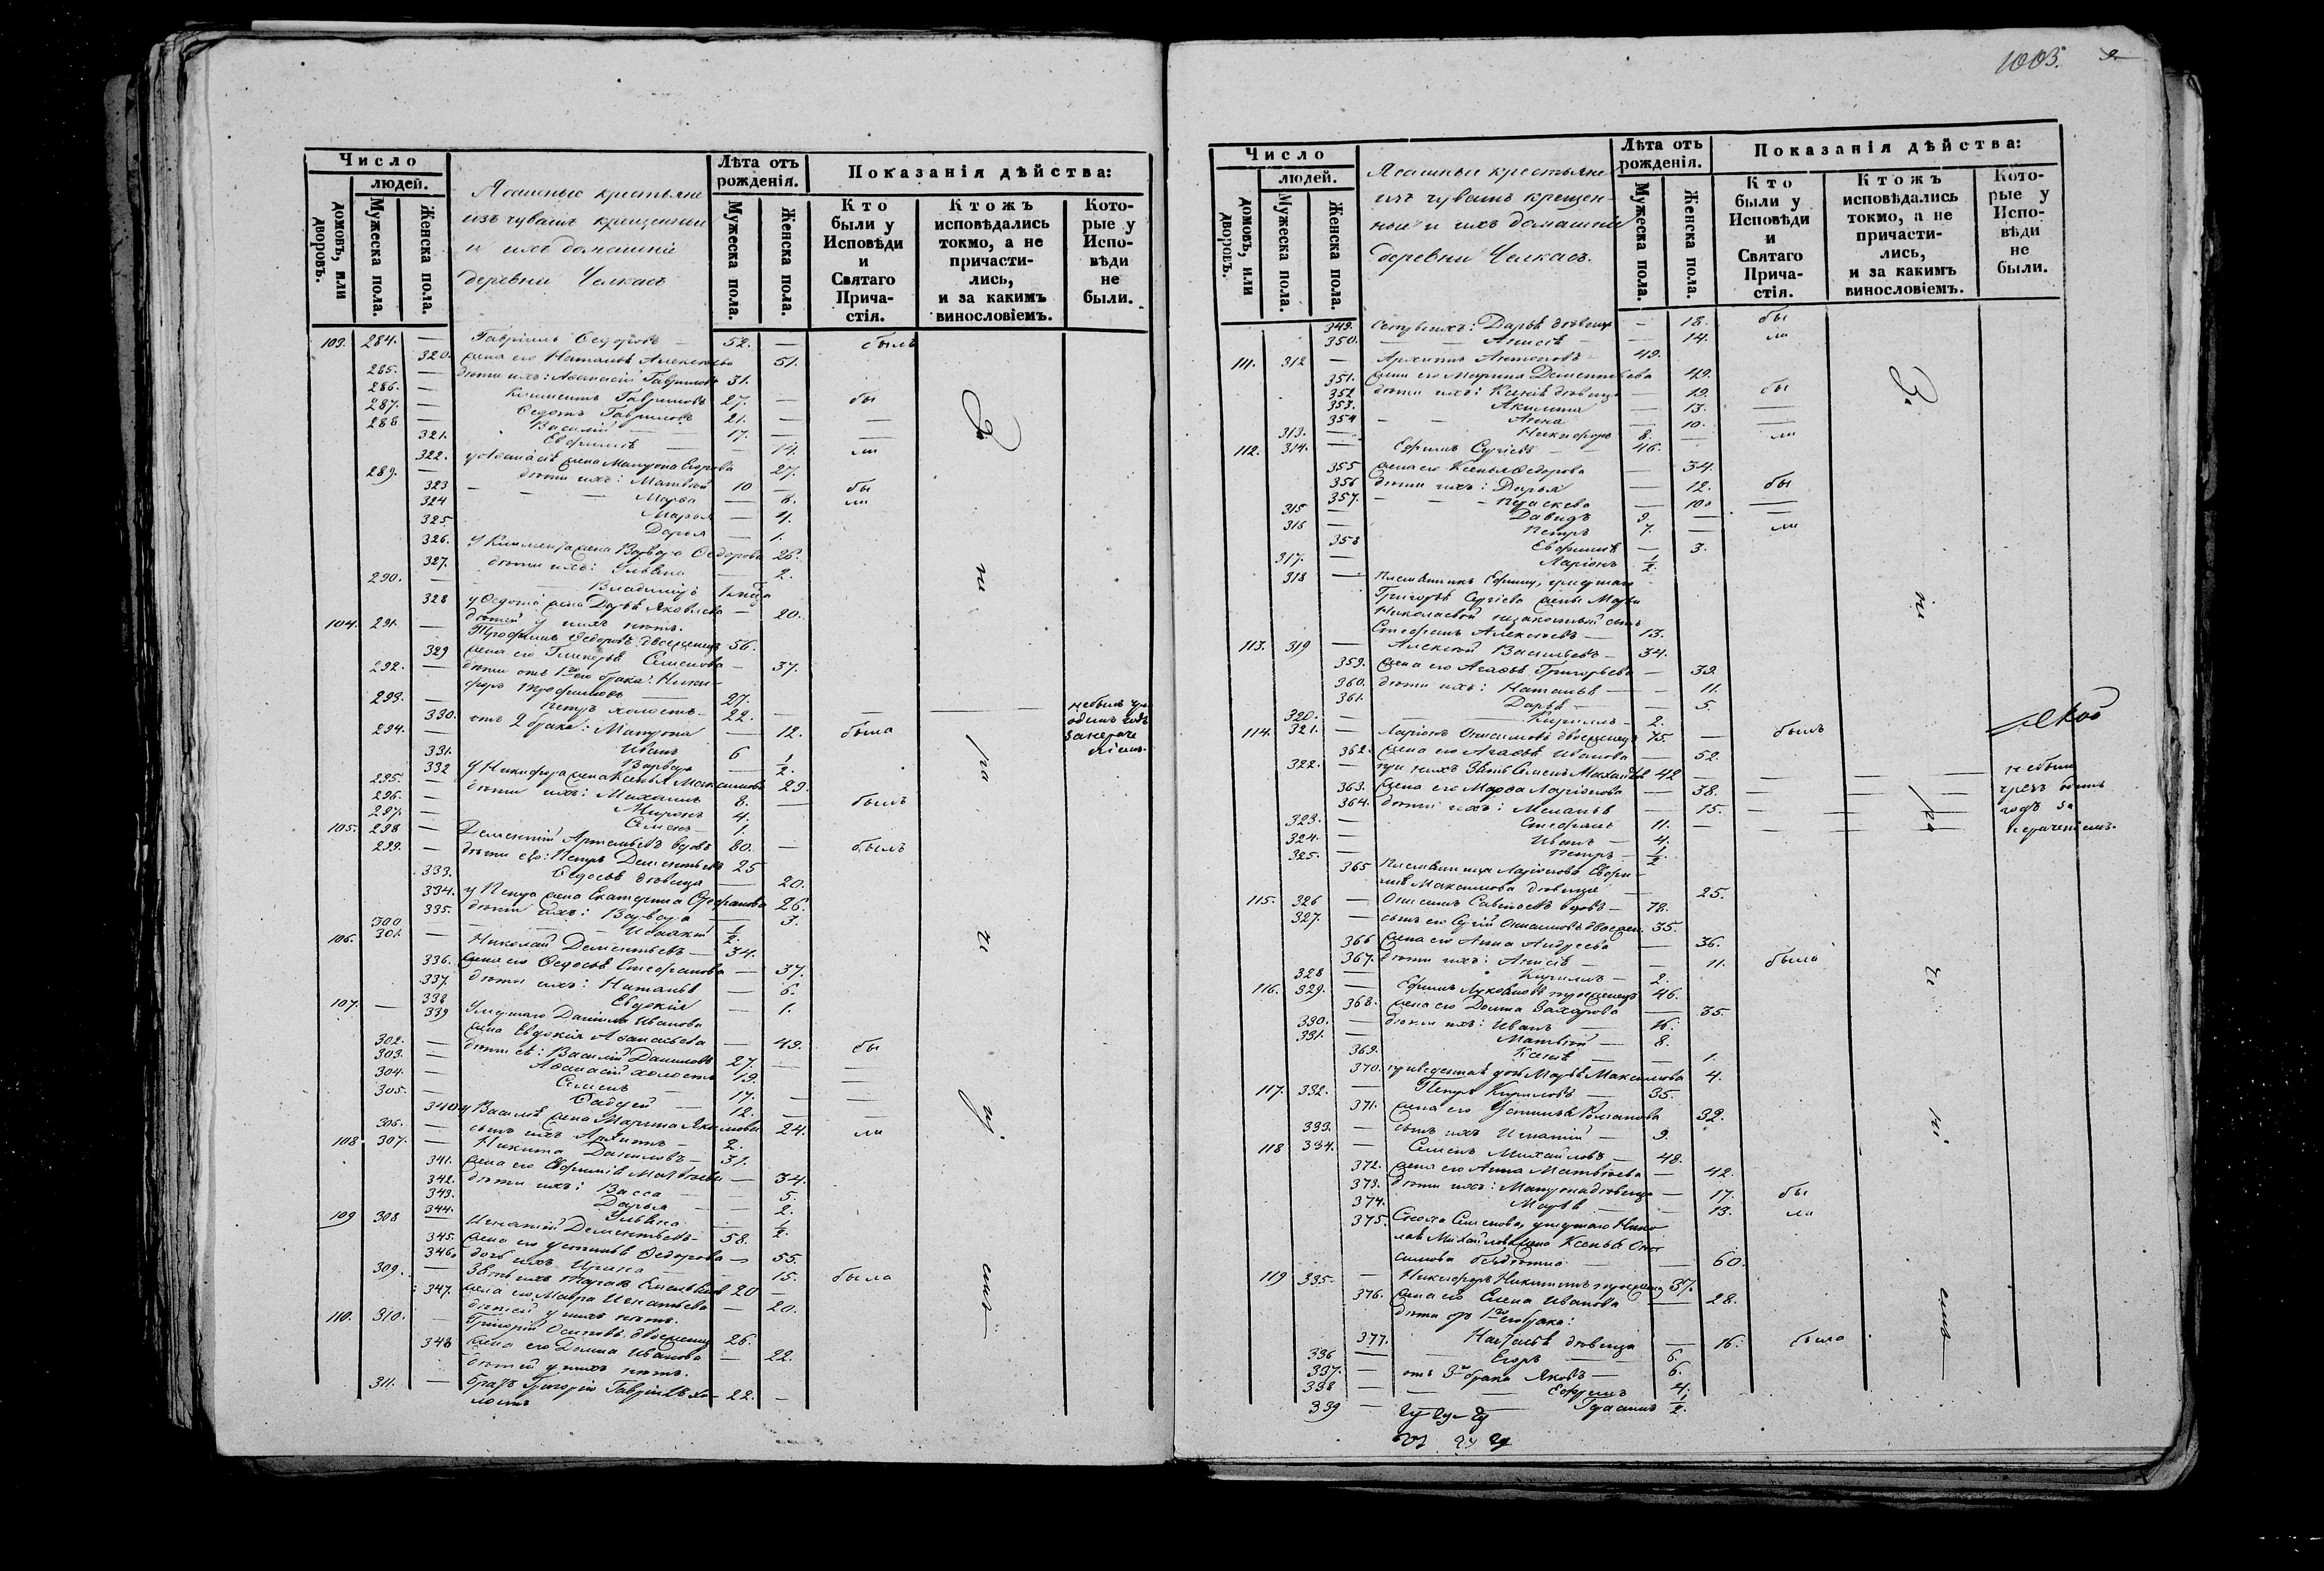 Число
людей.
домовъ, или дворовъ.
Мужеска пола.
Женска пола.
Ясашные крестьяне
изъ чувашъ крещенные
и ихъ домашніе
деревни Челкасъ
Лѣта отъ рожденія.
Мужеска пола.
Женска пола.
Показанія дѣйства:
Кто были у Исповѣди и Святаго Прича-стія.
Ктожъ исповѣдались токмо, а не причасти-лись, и за какимъ винословіемъ.
Кото-рые у Испо-вѣди не были.
103. 284. — Гавріилъ Ѳедоровъ — 52. — былъ
320. жена его Наталья Алексеева 51.
285. — дѣти ихъ: Аѳанасій Гавриловъ 31.
286. — Климентъ Гавриловъ 27. — бы
287. — Ѳедотъ Гавриловъ 21. — —
288 — Василій — 17. — —
321. Евфимія — 14. ли
322. у Аѳанасія жена Матрона Егорова 27.
289. — дѣти ихъ: Матвей 10 — бы
323 — Марфа — 8. ли
324 Марья — 4.
325. Дарья — 1.
326. у Климента жена Варвара Ѳедорова 26.
327. дѣти ихъ: Ульяна — 2.
290. — Владимиръ
328 у Ѳедота жена Дарья Яковлева — 20.
дѣтей у нихъ нѣтъ.
104. 291. — Трофимъ Ѳедоровъ двоеженецъ 56.
329 жена его Гликерія Семенова — 37.
292. — дѣти отъ 1го его брака: Ники-
форъ Трофимовъ — 27.
293. — Петръ холостъ — 22. — — — не былъ чр.
330. отъ 2 брака: Матрона — 12. была одинъ годъ
294. — Иванъ 6 за нераче
331. Варвара — 1/2. ніемъ.
332 у Никифора жена Ксенья Максимова 29.
295. — дѣти ихъ: Михаилъ 8. — былъ
296. — Миронъ 4.
297. — Семенъ — 1.
105. 298 — Дементій Артемьевъ вдовъ 80. — былъ
299. — дѣти его: Петръ Дементьевъ 25
333. Ѳедосья дѣвица — 20.
334. у Петра жена Екатерина Стефанова 26.
335. дѣти ихъ: Варвара — 3.
300 — Исаакій 1/2.
106. 301. — Николай Дементьевъ — 34.
336. жена его Ѳедосья Стефанова — 37.
337. дѣти ихъ: Наталья — 6.
338 Евдокія — 1.
107. — 339 Умершаго Даніила Иванова
жена Евдокія Афанасьева — 49. бы
302. — дѣти ея: Василій Даниловъ 27. — —
303. — Афанасій холостъ 19. — —
304. — Семенъ — 17. — —
305. — Фадѣей — 12. —
340 у Василья жена Марина Якимова 24. ли
306. — сынъ ихъ Архипъ — 2.
108. 307. — Никита Даниловъ — 31.
341. жена его Евфимія Матвѣева — 34.
342. дѣти ихъ: Васса — 5.
343. Дарья — 2.
344. Ульяна — 1/2.
109 308 — Игнатій Дементьевъ — 58.
345. жена его Устинья Ѳедорова — 55.
346. дочь ихъ Ирина — 15. была
309. — Зять ихъ Тарасъ Емельяновъ 20 —
347. жена его Мавра Игнатьева — 20.
дѣтей у нихъ нѣтъ.
110. 310. — Григорій Осиповъ двоеженецъ 26.
348 жена его Домна Иванова — 22.
дѣтей у нихъ нѣтъ.
311. — братъ Григорія Гавріилъ хо- 22. —
лостъ
За не ра че ні емъ
1003.
Число
людей.
домовъ, или дворовъ.
Мужеска пола.
Женска пола.
Ясашныи крестьяне
изъ чувашъ крещен-
ные и ихъ домашніе
деревни Челкасъ.
Лѣта отъ рожденія.
Мужеска пола.
Женска пола.
Показанія дѣйства:
Кто были у Исповѣди и Святаго Прича-стія.
Ктожъ исповѣдались токмо, а не причасти-лись, и за какимъ винословіемъ.
Кото-рые у Испо-вѣди не были.
349. сестры ихъ: Дарья дѣвица — 18. бы
350. — Анисія — 14. ли
111. 312 — Архипъ Антоновъ — 49.
351. жена его Марина Дементьева 49.
352 дѣти ихъ: Ксенія дѣвица — 19. бы
353. Акилина — 13. —
354 — Анна — 10. —
313. — Никифоръ 8. — ли
112. 314. — Ефимъ Сергіевъ — 46.
355 жена его Ксенья Ѳедорова — 34.
356 дѣти ихъ: Дарья — 12. бы
357. — Праскева — 10. —
315 — Давидъ 9. — —
316 — Петръ 7. — ли
358 Евфимія — 3.
317. — Ларіонъ 1/2.
318 — Племянникъ Ефиму, умершаго
Григорья Сергіева жены Марьи
Николаевой незаконный сынъ
Стефанъ Алексѣевъ — 13.
113. 319 — Алексѣй Васильевъ — 34.
359. жена его Агафья Григорьева — 33.
360. дѣти ихъ: Наталья — 11.
361. Дарья — 5.
320. — Кириллъ — 2.
114. 321. — Ларіонъ Онисимовъ двоеженецъ 75. — былъ
362. жена его Агафья Иванова — 52.
322. — при нихъ зять Семенъ Михайловъ 42 — — — не были
363. жена его Марфа Ларіонова — 38. — чрезъ одинъ
364. дѣти ихъ: Меланья — 15. — годъ за
323. — Стефанъ 11. — — нераченіемъ.
324. — Иванъ — 4.
325. — Петръ — 1/2.
365 Племянница Ларіонова Евфи-
мія Максимова дѣвица — 25.
115. 326 — Онисимъ Савельевъ вдовъ — 78.
327. — сынъ его Сергій Онисимовъ двоежен. 35.
366 жена его Анна Андреева — 36.
367. дѣти ихъ: Анисія — 11. была
328 — Кириллъ — 2.
116. 329. — Ефимъ Лукояновъ троеженецъ 46.
368. жена его Домна Захарова — 35.
330. — дѣти ихъ: Иванъ — 16.
331. — Матвей — 8.
369. Ксенія — 1.
370. приведенная дочь Марья Максимова 4.
117. 332. — Петръ Кириловъ — 35.
371. жена его Устинья 32.
333. — сынъ ихъ Игнатій — 9.
118 334. — Семенъ Михайловъ — 48.
372. жена его Анна Матвѣева — 42.
373. дѣти ихъ: Матрона дѣвица — 17. бы
374. Марья — 13. ли
375. Сноха Семенова, умершаго Нико-
лая Михайлова жена Ксенья Они
симова бездѣтна — 60.
119 335. — Никифоръ Никитинъ троежен. 37.
376. жена его Елена Иванова — 28.
дѣти отъ 1го его брака:
377. Настасья дѣвица — 16. была
336 — Егоръ — 6.
337. — отъ 3го брака Яковъ — 6.
338 — Ефремъ 4.
339 — Герасимъ 1/2.
За не ра че ні емъ